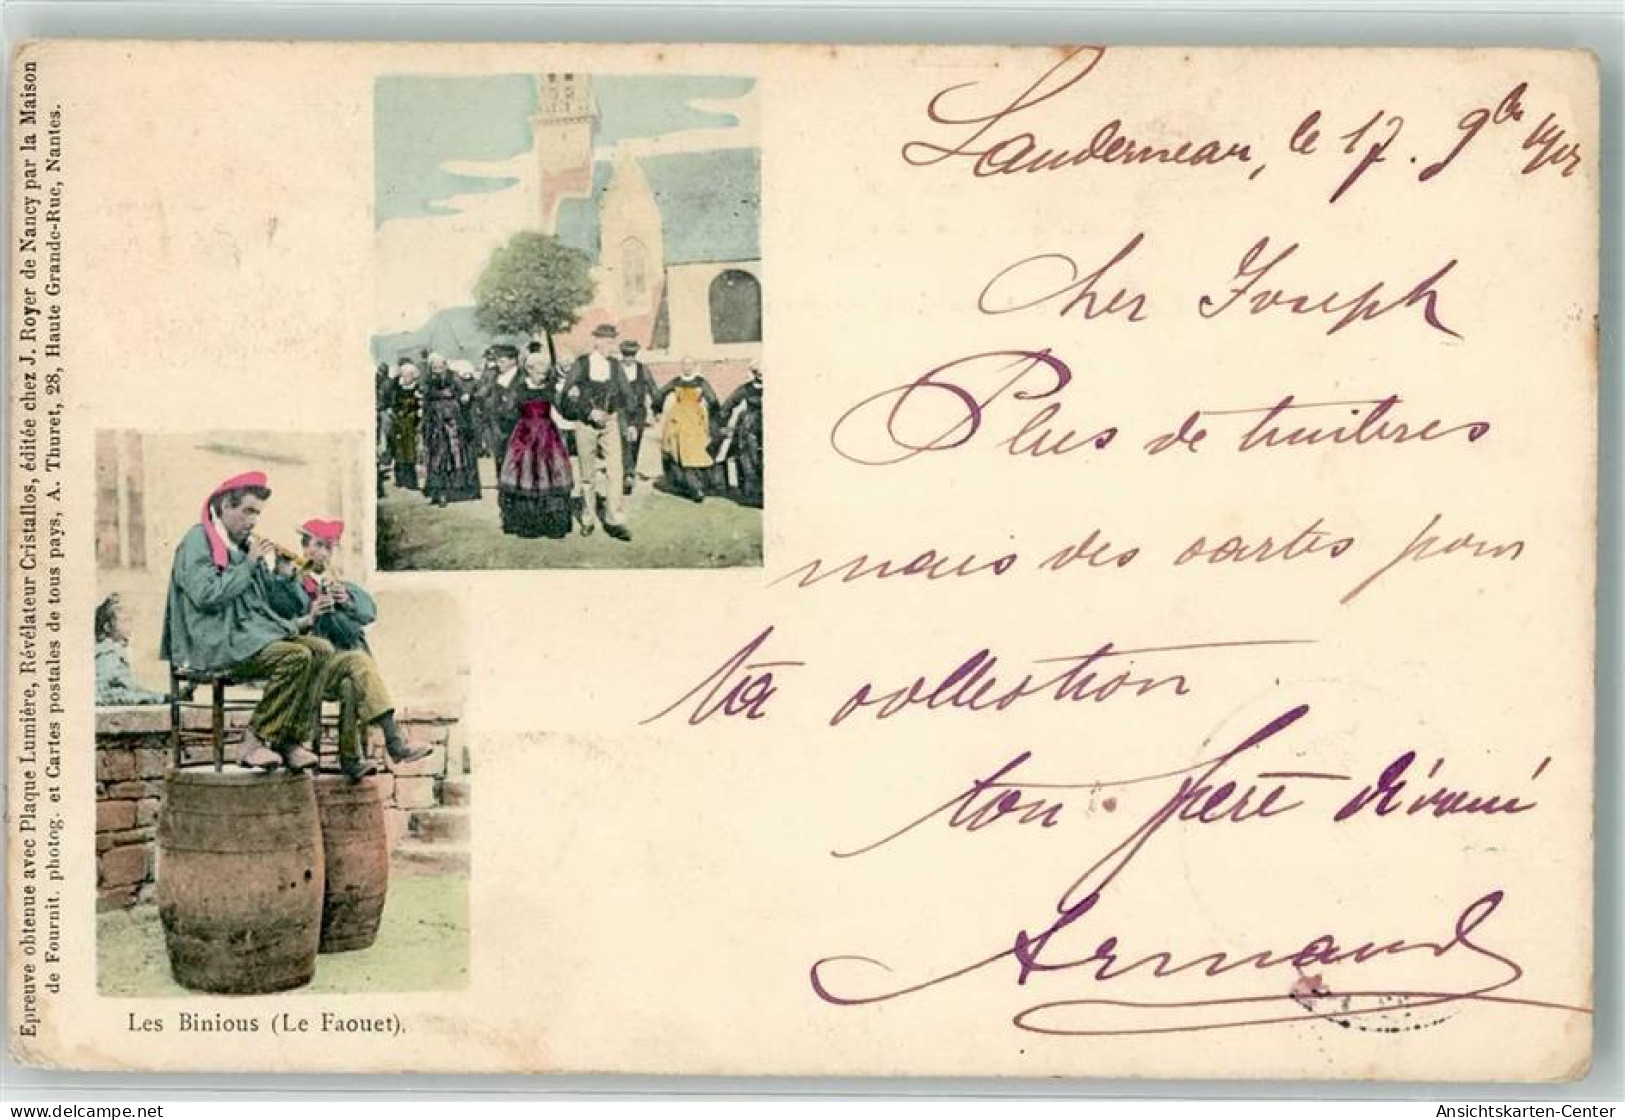 Epreuve obtenue avec Plaque Lumière, Révélateur Cristallos, éditée chez J. Royer de Nancy par la Maison
de Fournit. photog. et Cartes postales de tous pays, A. Thuret, 28, Haute Grande-Rue, Nantes.
Landerneau, le 17. 9bre
Cher Joseph
Plus de timbres
mais des cartes pour
ta collection
ton frère dévoué
Armand
Les Binious (Le Faouet).
www.delcampe.net
Ansichtskarten-Center